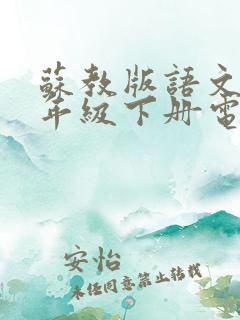 蘇教版語文
年級下册電
安怡
未经同意禁止转载